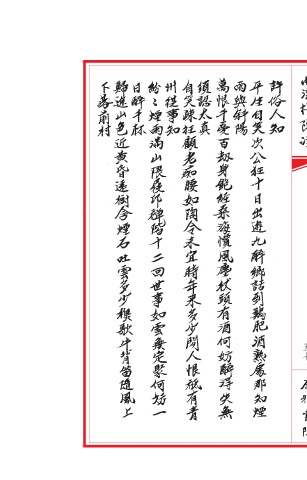 許俗人知
平生自笑次公狂十日出遊九醉鄉話到鷄肥酒熟處那知煙
雨與斜陽
萬恨千愁百劫身飽經桑海慣風塵杖頭有酒何妨醉得失無
須認太真
自笑疎狂願老痴腰如陶令未宜時年來多少閒人恨祗有青
州從事知
紛紛煙雨滿山隈夜叩禪階十二回世事如雲無定聚何妨一
日醉千杯
歸進山色近黃昏遠樹含煙石吐雲多少樵歌牛背笛隨風上
下落前村